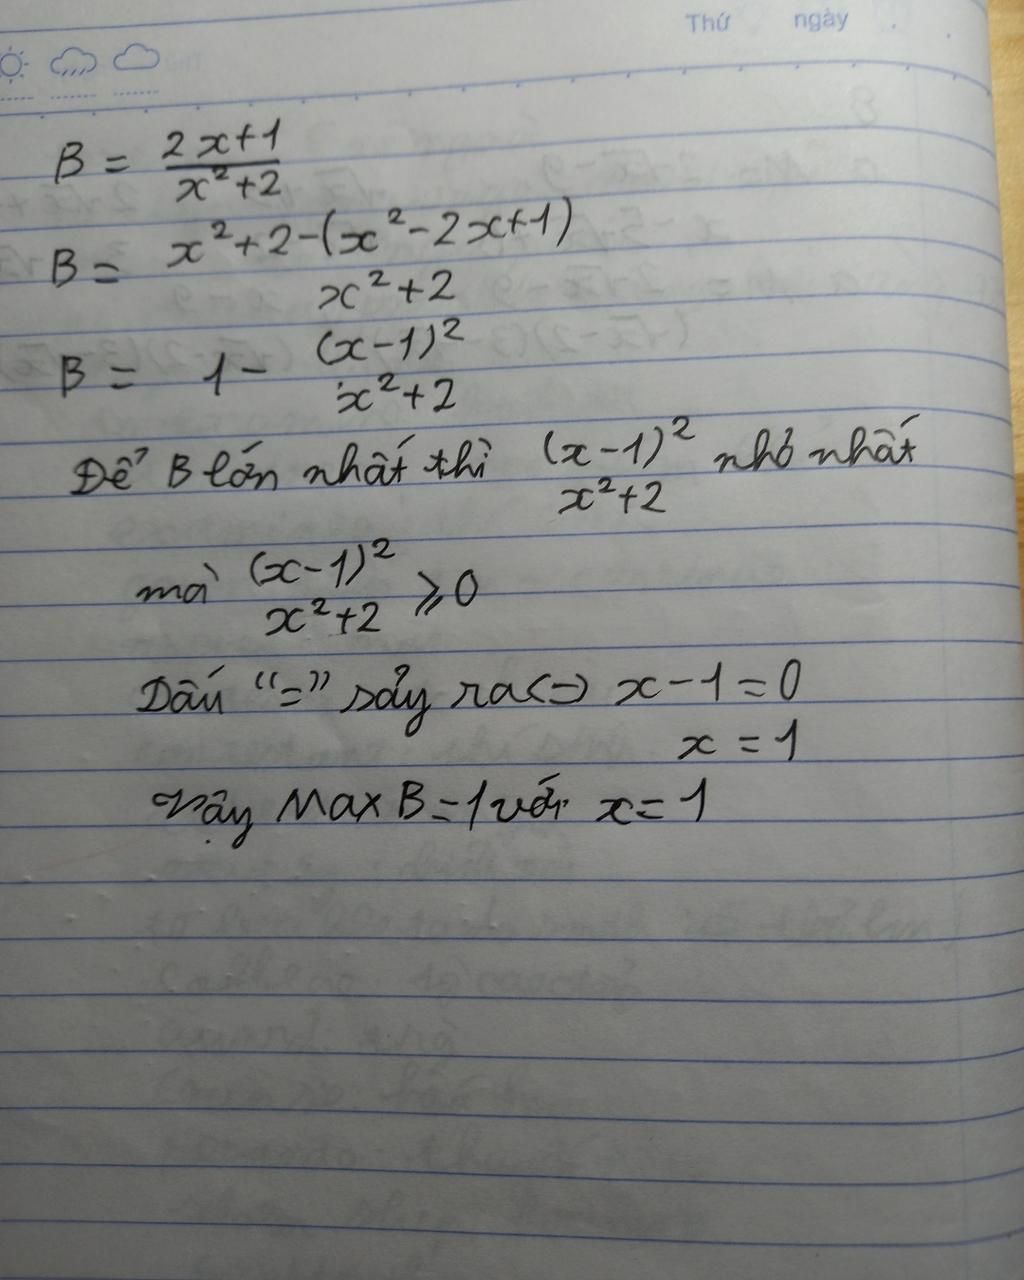 Thứ ngày
B = (2x+1)/(x²+2)
B = (x²+2-(x²-2x+1))/(x²+2)
B = 1 - (x-1)²/(x²+2)
Để B lớn nhất thì (x-1)²/(x²+2) nhỏ nhất
mà (x-1)²/(x²+2) ⩾ 0
Dấu "=" sảy ra <=> x-1=0
x = 1
Vậy Max B=1 với x=1